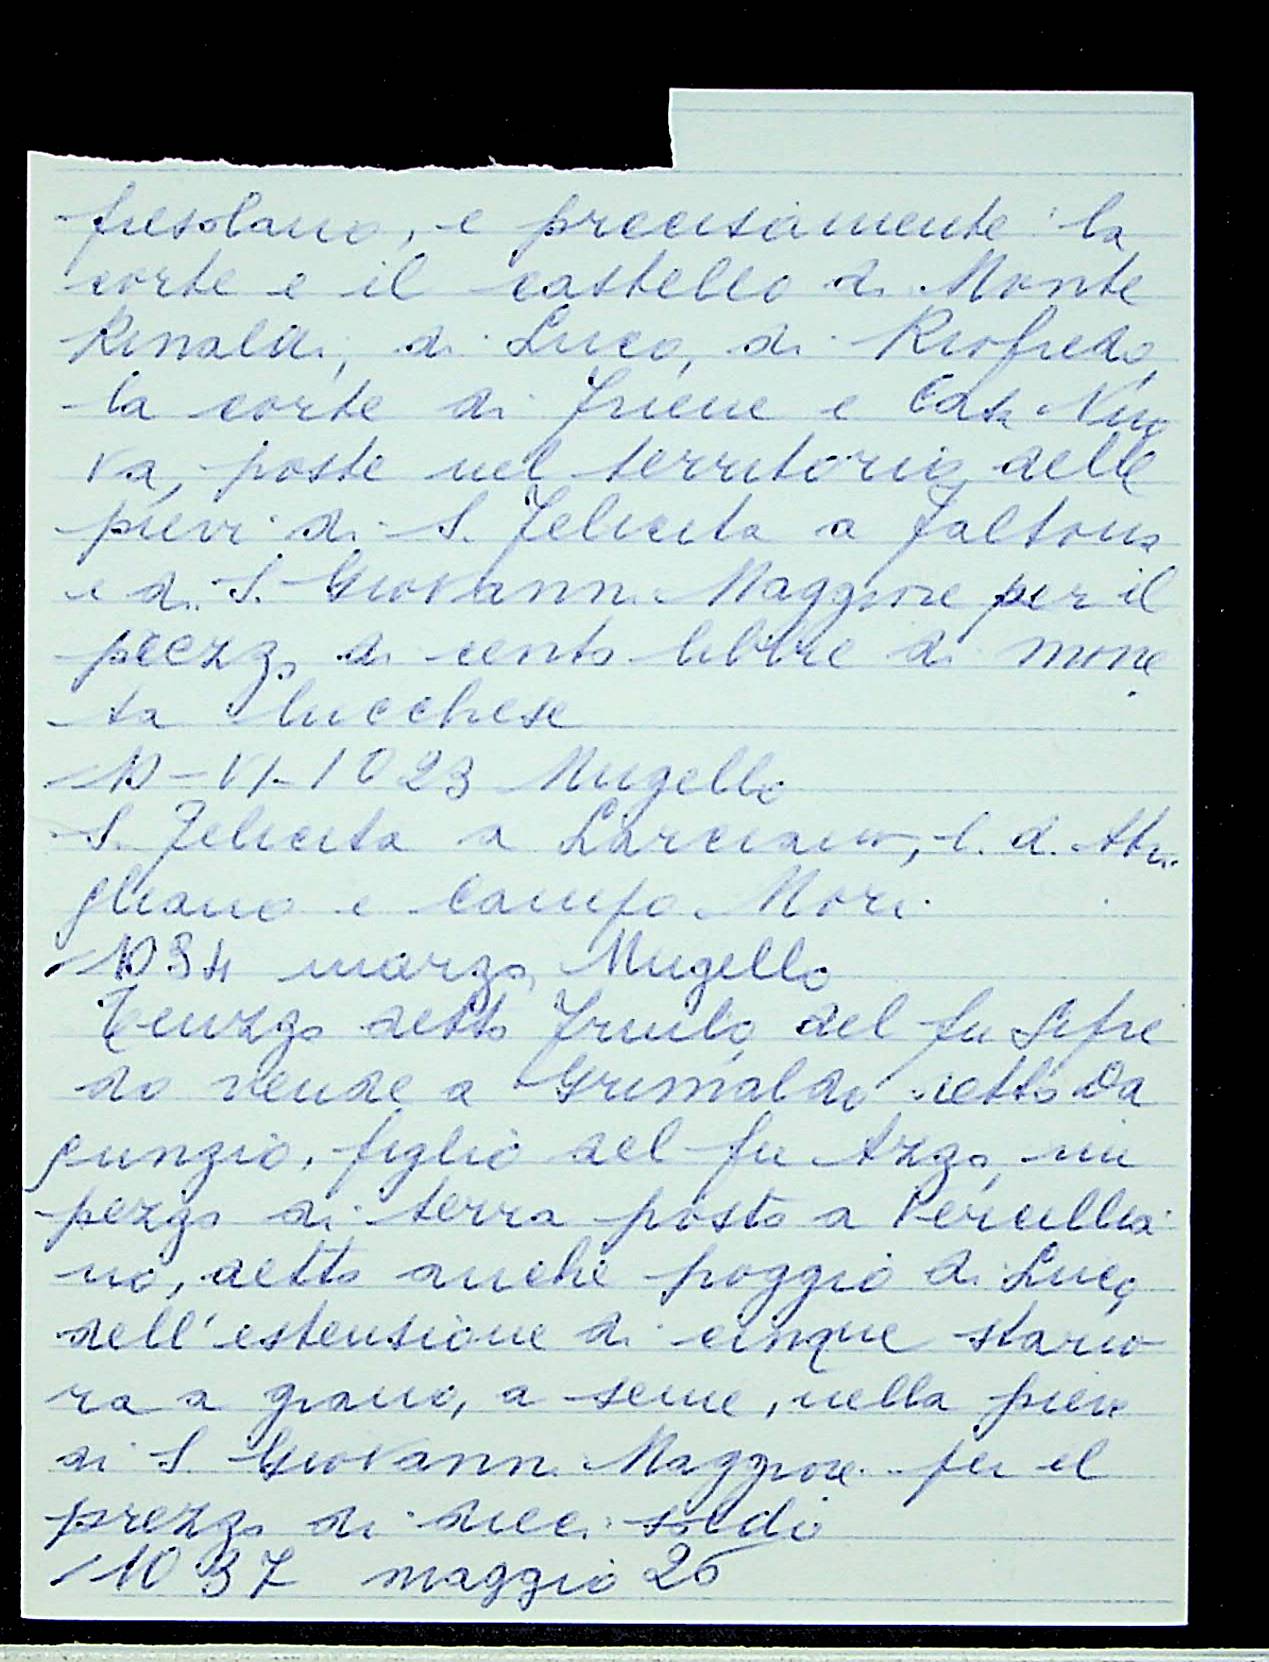 fiesolano, e precisamente la
corte e il castello di Monte
Rinaldi, di Luco, di Riofredo,
la corte di Friene e Casa Nuo
va, poste nel territorio delle
pievi di S. Felicita a Faltona
e di S. Giovanni Maggiore per il
prezzo di cento libbre di mone
ta lucchese
10-VI-1023 Mugello
S. Felicita a Larciano, l. d.
gliano e Campo Mori
1034 marzo, Mugello
Teuzzo detto del fu Sifre
do vende a Grimaldo detto Da
gunzio, figlio del fu Azzo, un
pezzo di terra posto a Percillia
no, detto anche poggio di Luco,
dell'estensione di cinque stario
ra a grano, a seme, nella pieve
di S. Giovanni Maggiore per il
prezzo di dieci soldi
1037 maggio 26